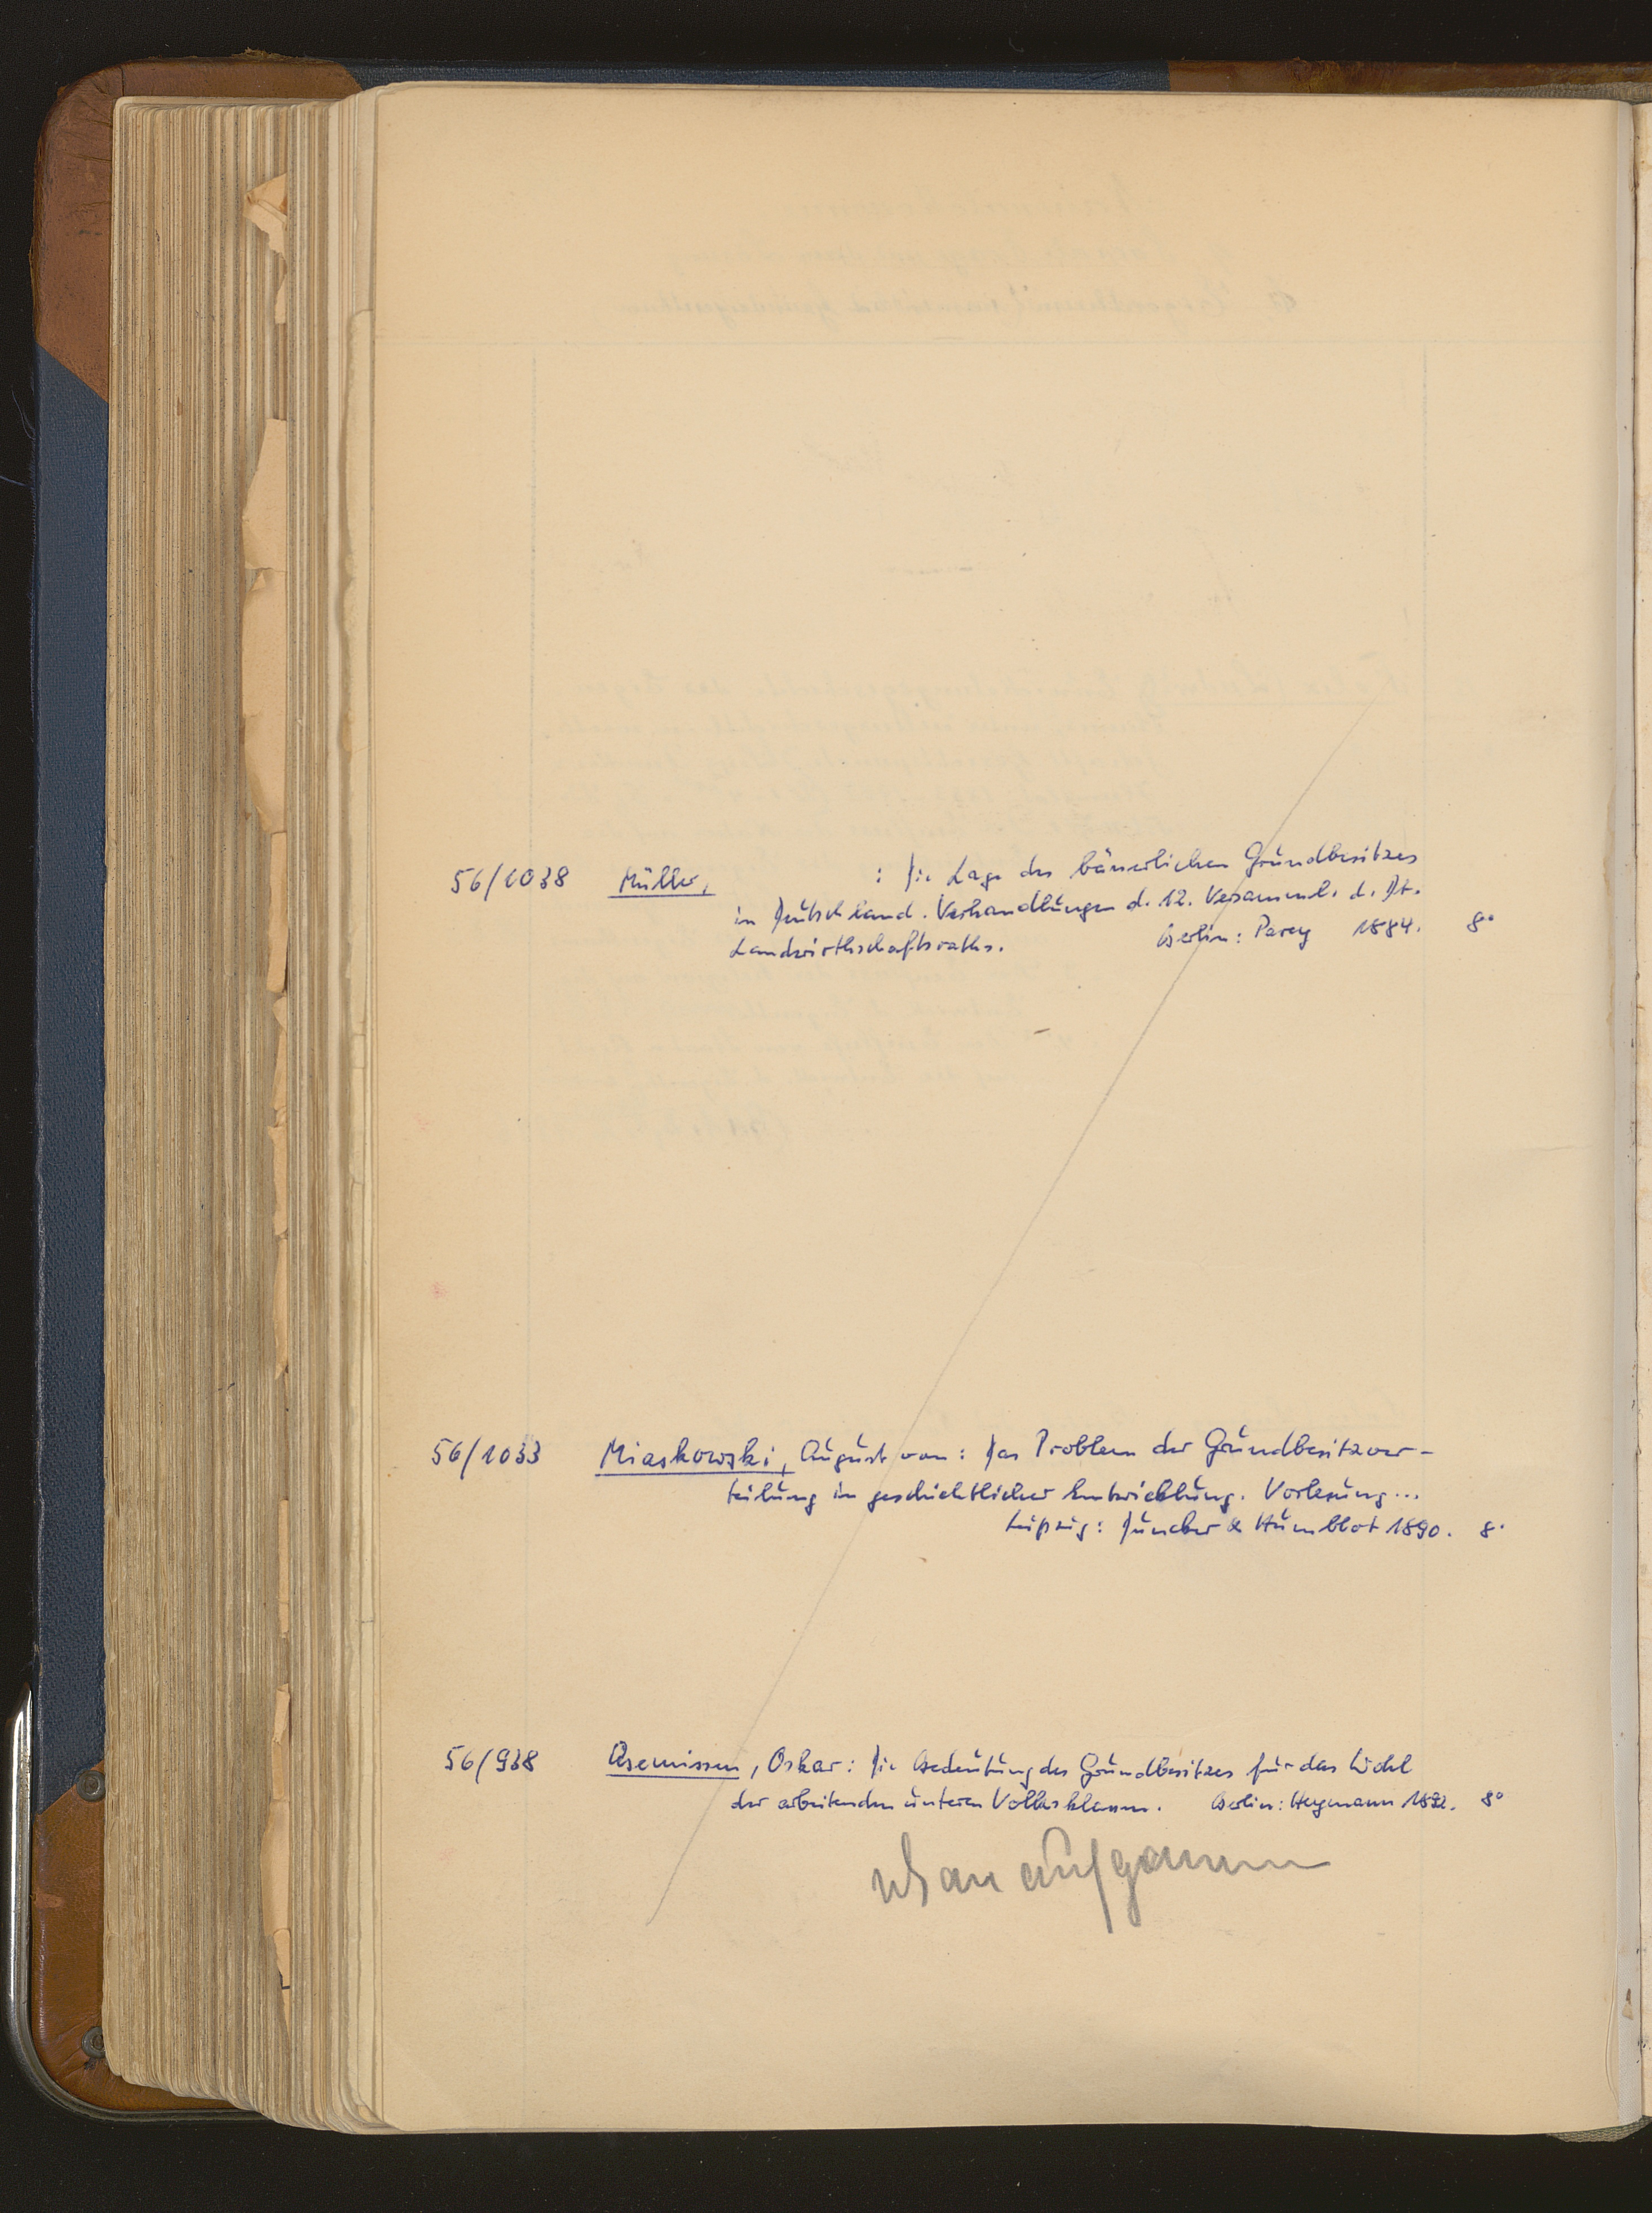 56/1038 Müller, : Die Lage des bäuerlichen Grundbesitzes
in Deutschland. Verhandlungen d. 12. Versamml. d. Dt.
Landwirthschaftsraths. Berlin: Parey 1884. 8°
56/1033 Miaskowski, August von: Das Problem der Grundbesitzver-
teilung in geschichtlicher Entwicklung. Vorlesung...
Leipzig: Duncker & Humblot 1890. 8°
56/938 Asemissen, Oskar: Die Bedeutung des Grundbesitzes für das Wohl
der arbeitenden unteren Volksklassen. Berlin: Heymann 1892. 8°